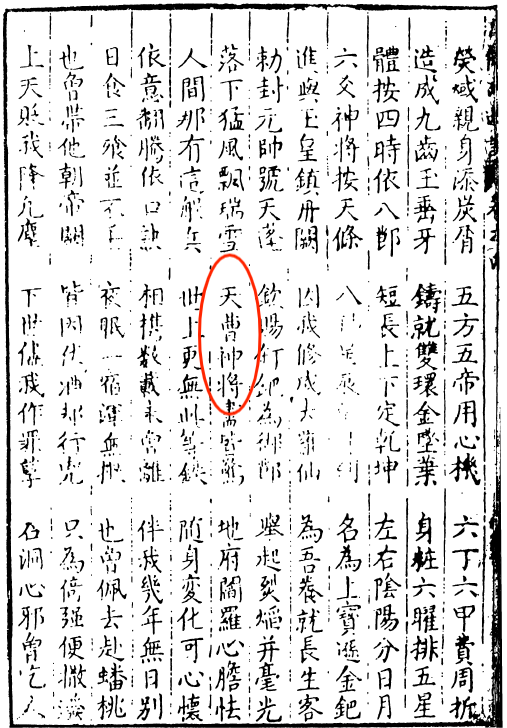 熒惑親身添炭屑 五方五帝用心機 六丁六甲費周折
造成九齒玉垂牙 鑄就雙環金墜葉 身粧六曜排五星
體按四時依八節 短長上下定乾坤 左右陰陽分日月
六爻神將按天條 八 名為上寶遜金鈀
進與玉皇鎮丹闕 因我修成大羅仙 為吾養就長生客
勅封元帥號天蓬 欽賜釘鈀為御節 舉起烈焰并毫光
落下猛風飄瑞雪 天曹神將盡皆驚 地府閻羅心膽怯
人間那有這般兵 世上更無此等鐵 隨身變化可心懷
依意翻騰依口訣 相携數載未曾離 伴我幾年無日別
日食三飡並不丟 夜眠一宿渾無撇 也曾佩去赴蟠桃
也曾帶他朝帝闕 皆因仗酒却行兇 只為倚强便撒潑
上天貶我降凡塵 下世儘我作罪孽 石洞心邪曾吃人